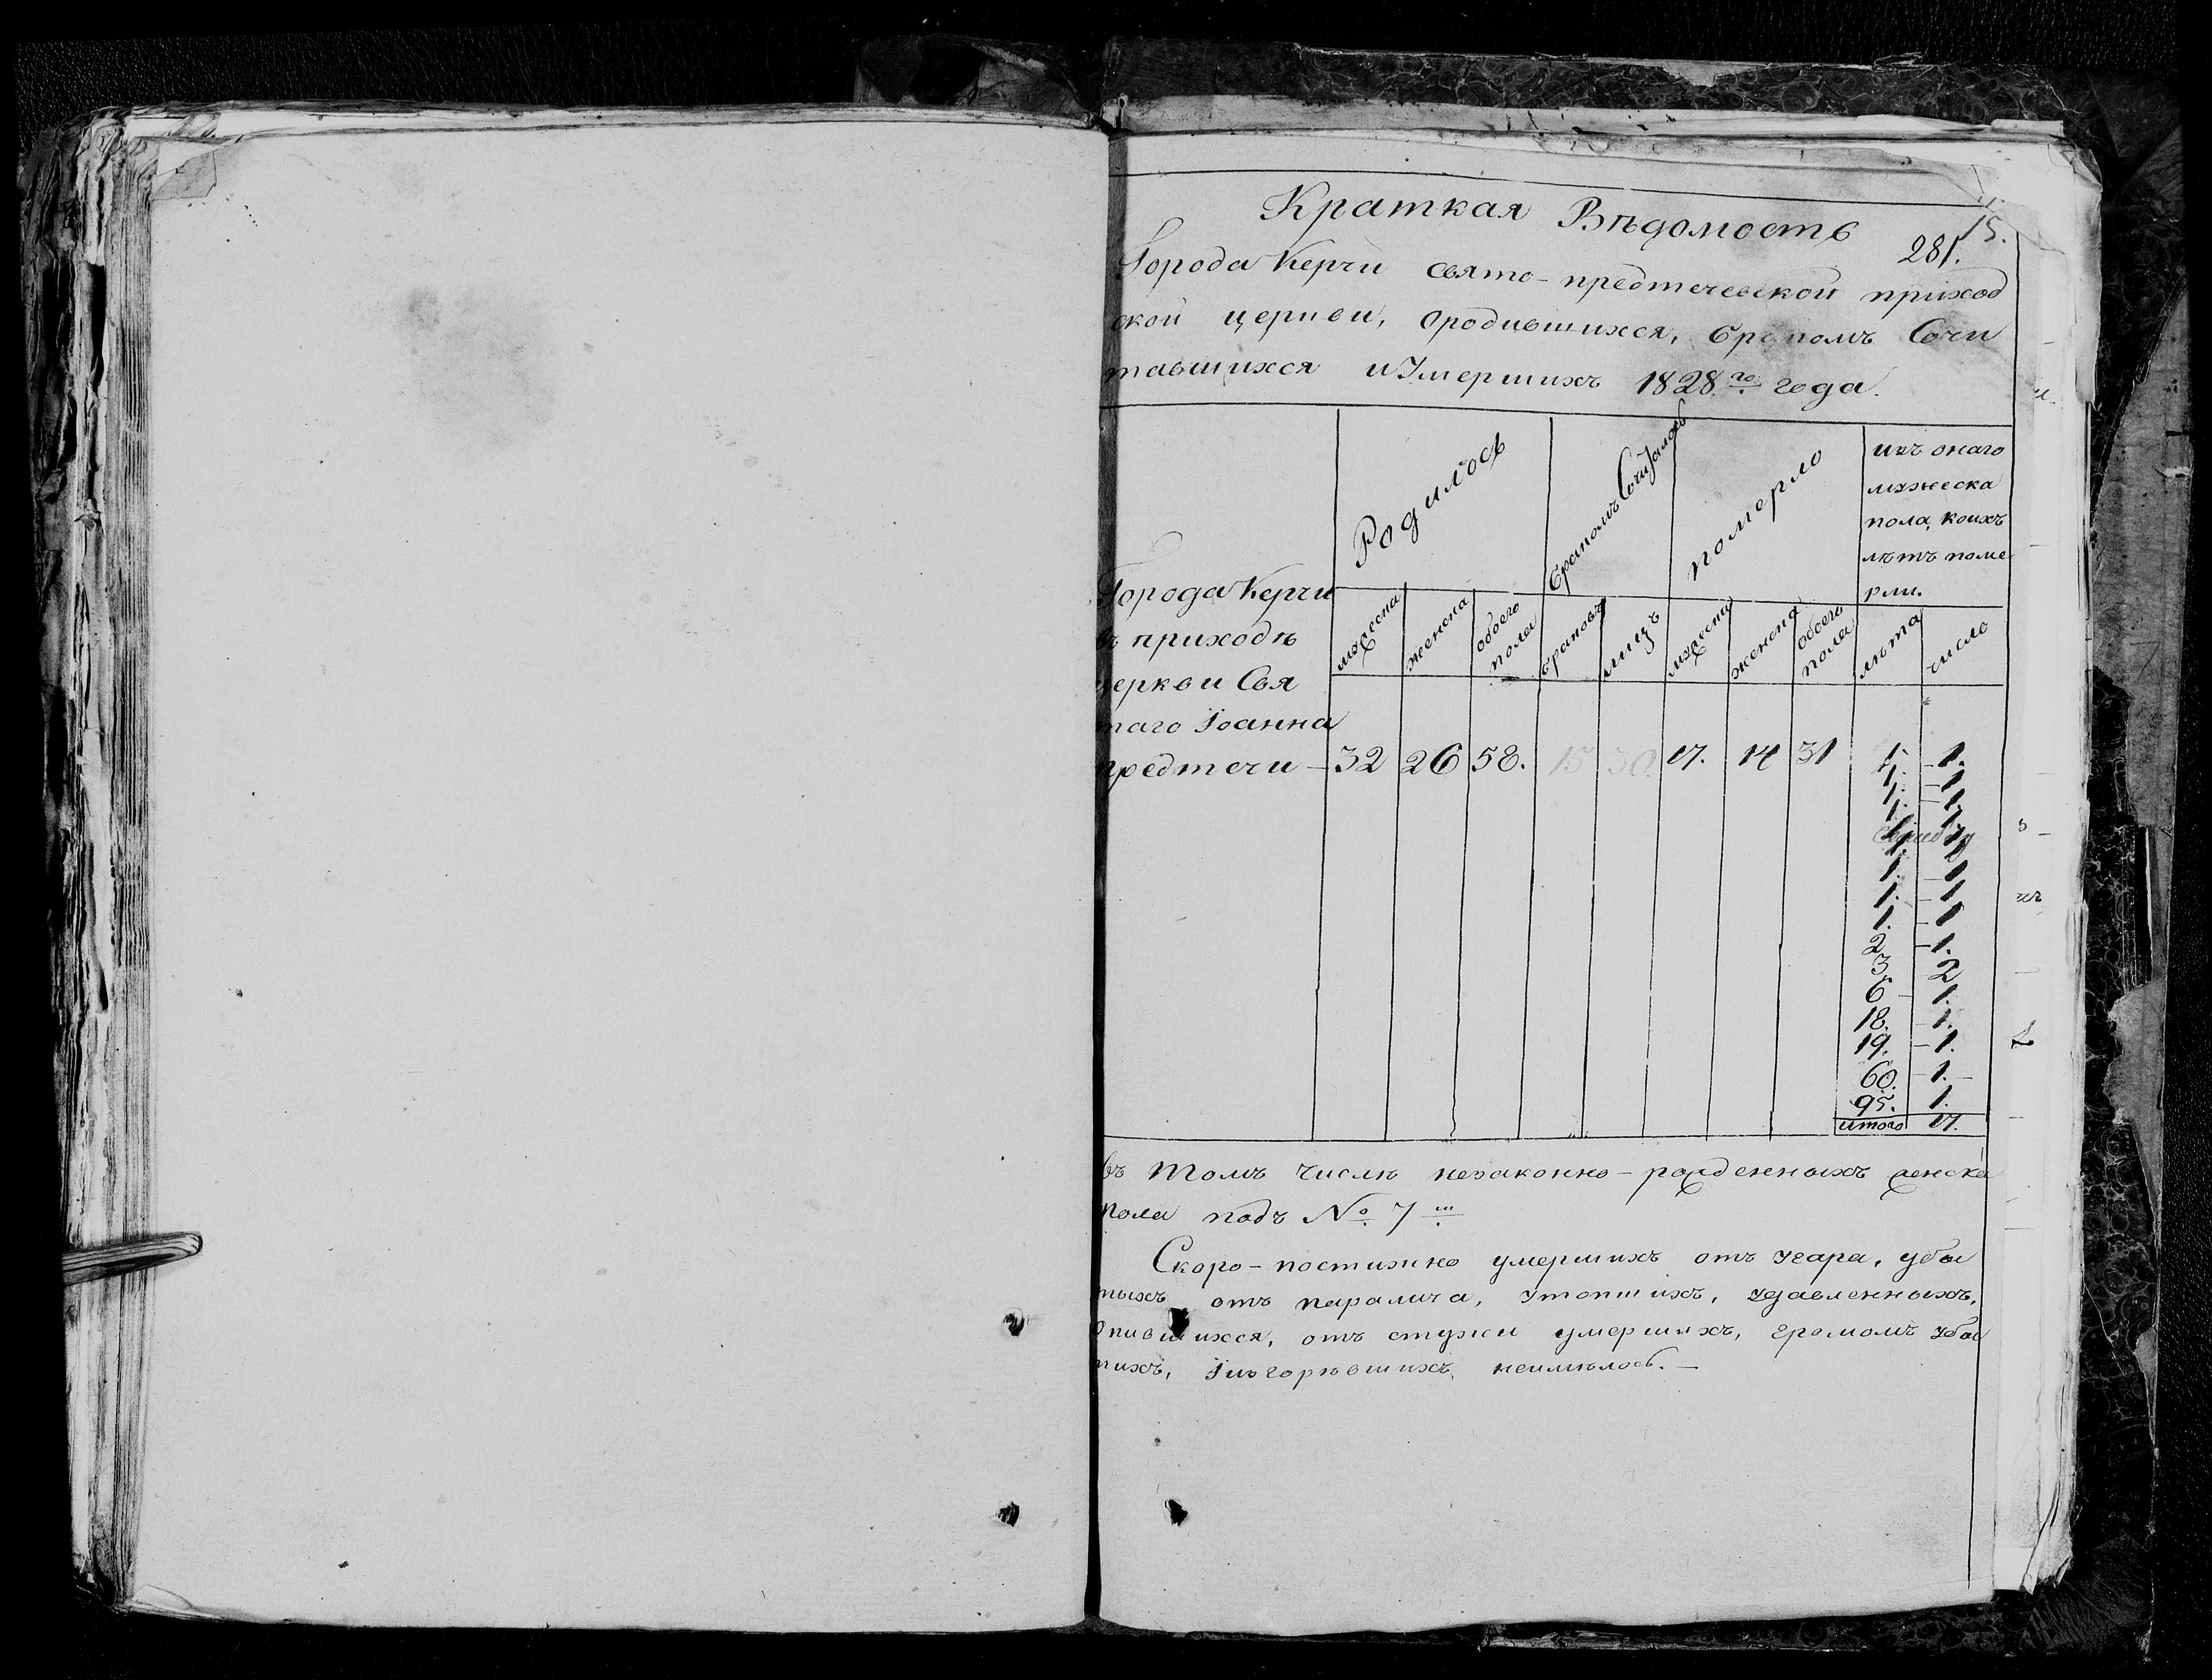 Краткая Вѣдомость
15.
281.
Города Керчи свято-предтечевской приход
ской церкви, ородившихся, бракомъ Сочи
тавшихся иУмершихъ 1828го года.
Родилось
бракомъ Сочеталось
померло
изъ онаго
мужеска
пола, коихъ
лѣтъ поме
рли.
мужеска женска обоего пола браковъ лицъ мужеска женска обоего пола лѣта число
Города Керчи
въ приходѣ
церкви Свя
таго Іоанна
предтечи - 32 26 58. 15 30. 17. 14 31 1. - 1.
1. - 1.
1. - 1.
1. 1.
1. - 1
1. - 1
1. - 1
2 - 1.
3 2
6 - 1.
18. - 1.
19. - 1.
60. - 1. -
95. 1.
итого 17.
въ томъ числѣ незаконно-рожденныхъ женска
пола подъ № 7м
Скоро-постижно умершихъ отъ угара, уби
тыхъ отъ паралича, утопшихъ, удавленныхъ,
опившихся, отъ стужи умершихъ, громомъ уби
тихъ, згорѣвшихъ, неимѣлось. -